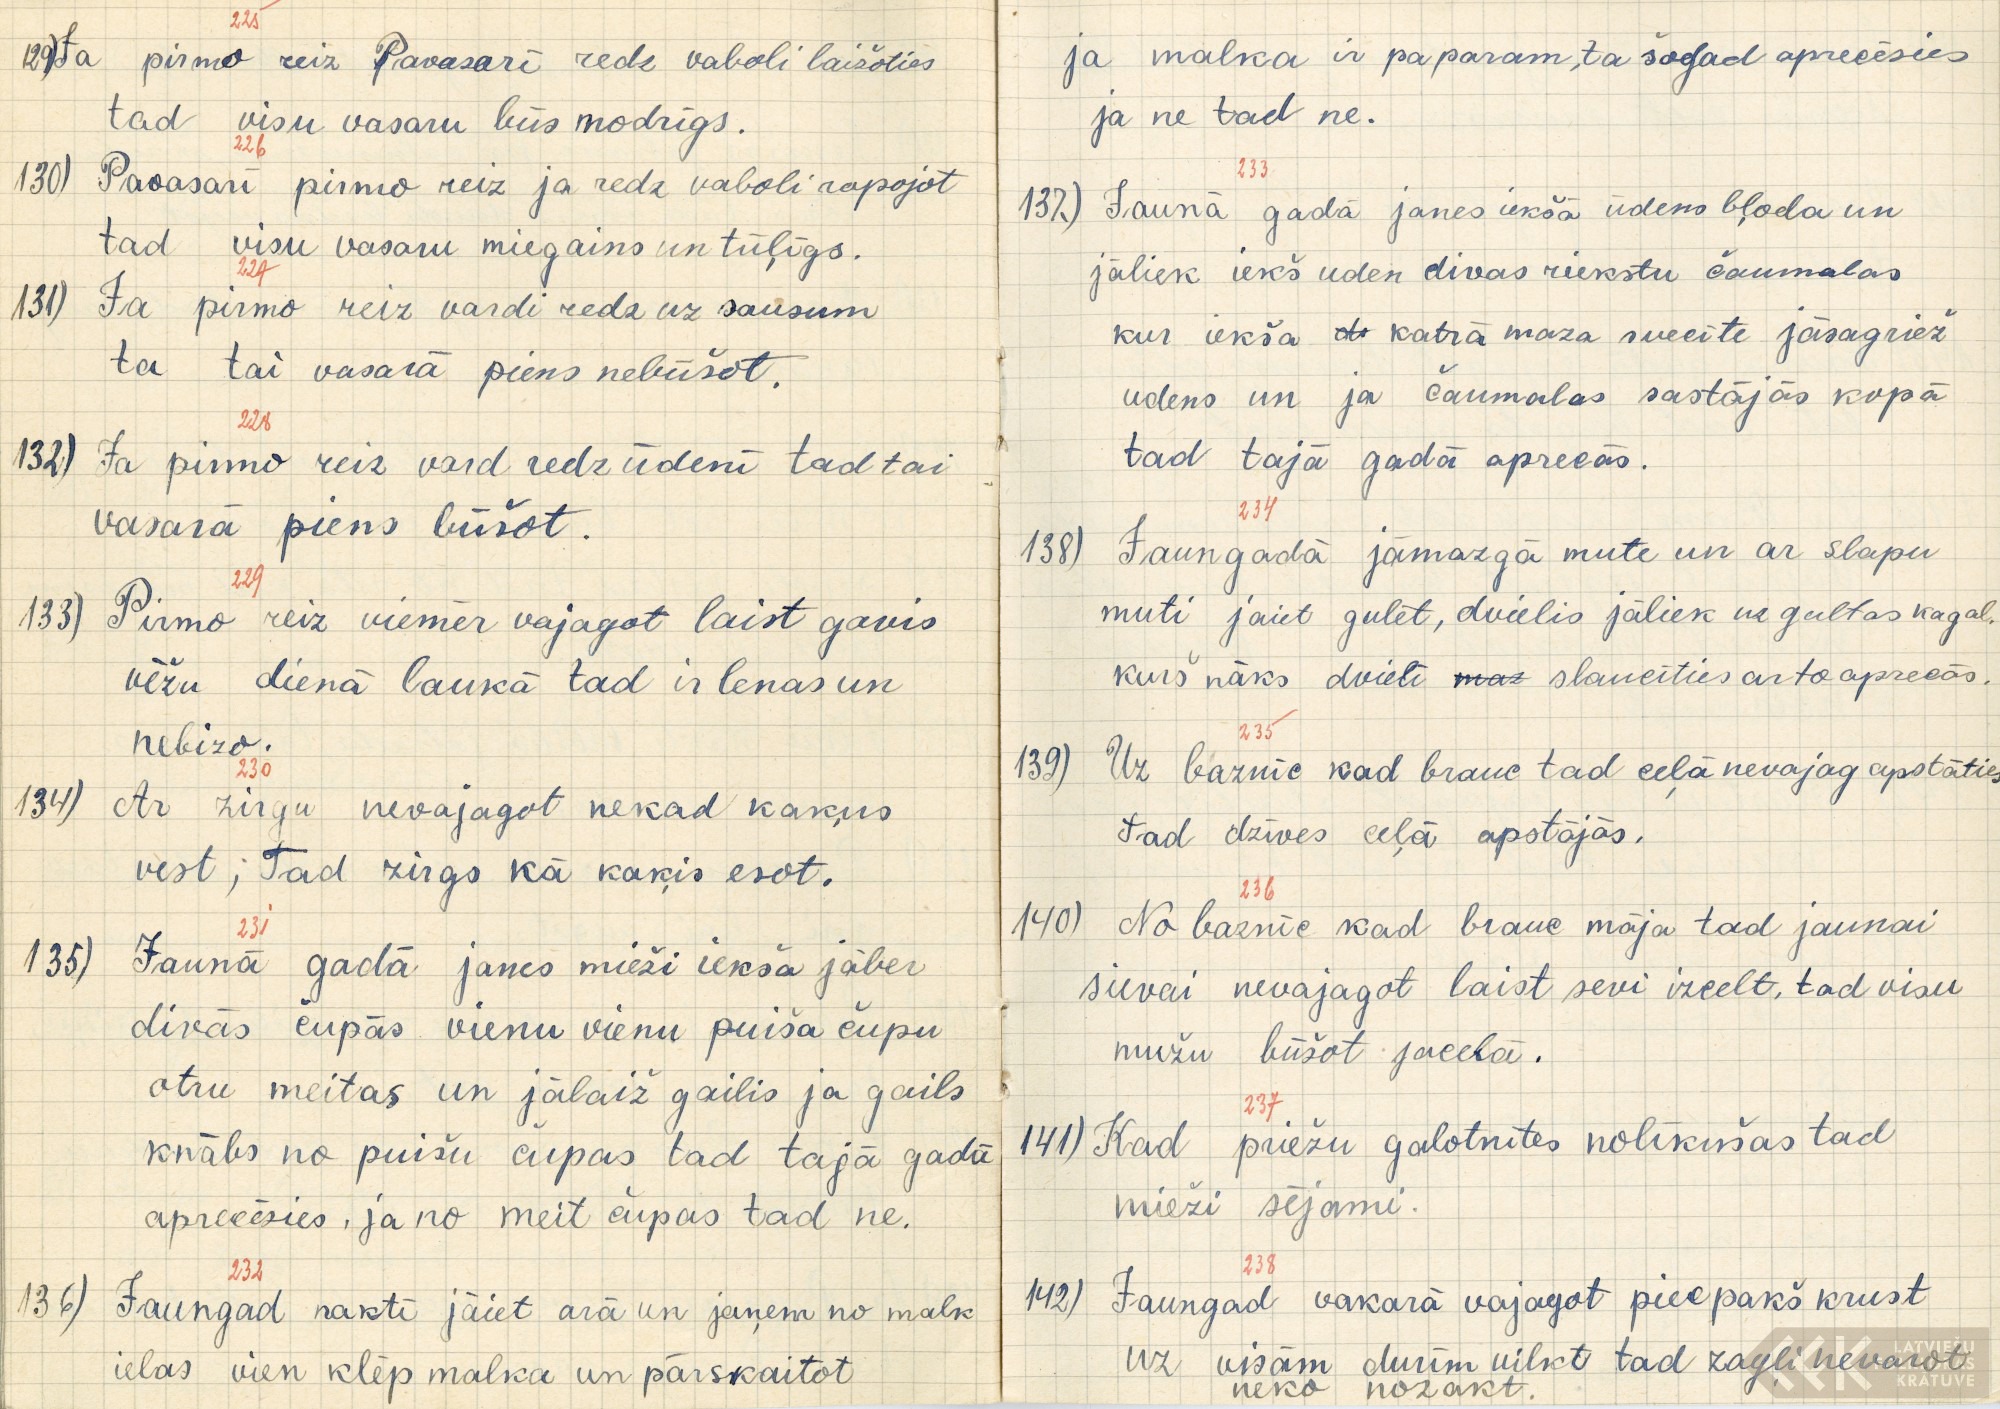 225
129) Ja pirmo reiz Pavasarī redz vaboli laižoties
tad visu vasaru būs modrīgs.
226
130) Pavasarī pirmo reiz ja redz vaboli rapojot
tad visu vasaru miegains un tūļīgs.
227
131) Ja pirmo reiz vardi redz uz sausum
ta tai vasarā piens nebūšot.
228
132) Ja pirmo reiz vard redz ūdenī tad tai
vasarā piens būšot.
229
133) Pirmo reiz vienmēr vajagot laist gavis
vēžu dienā laukā tad ir lenas un
nebizo.
230
134) Ar zirgu nevajagot nekad kaķus
vest, Tad zirgs kā kaķis esot.
231
135) Jaunā gadā janes mieži iekšā jāber
divās čupās vienu vienu puiša čupu
otru meitas un jālaiž gailis ja gails
knābs no puišu čupas tad tajā gadā
aprecēsies, ja no meit čupas tad ne.
232
136) Jaungad naktī jāiet arā un jaņem no malk
ielas vien klēp malka un pārskaitot
ja malka ir pa param, ta šogad aprecēsies
ja ne tad ne.
233
137) Jaunā gadā janes iekšā ūdens bļoda un
jāliek iekš uden divas riekstu čaumalas
kur iekša katrā maza svecīte jāsagriež
udens un ja čaumalas sastājās kopā
tad tajā gadā aprecās.
234
138) Jaungadā jāmazgā mute un ar slapu
muti jaiet gulēt, dvielis jāliek uz gultas kagal.
kurš nāks dvieli slaucīties ar to aprecās.
235
139) Uz baznīc kad brauc tad ceļā nevajag apstāties
tad dzīves ceļā apstājās.
236
140) No baznīc kad brauc māja tad jaunai
sievai nevajagot laist sevi izcelt, tad visu
mužu būšot jaceļā.
237
141) Kad priežu galotnītes nolīkušas tad
mieži sējami.
238
142) Jaungad vakarā vajagot piecpakš krust
uz visām durīm vilkt tad zagļi nevarot
neko nozakt.
LATVIEŠU
KRĀTUVE